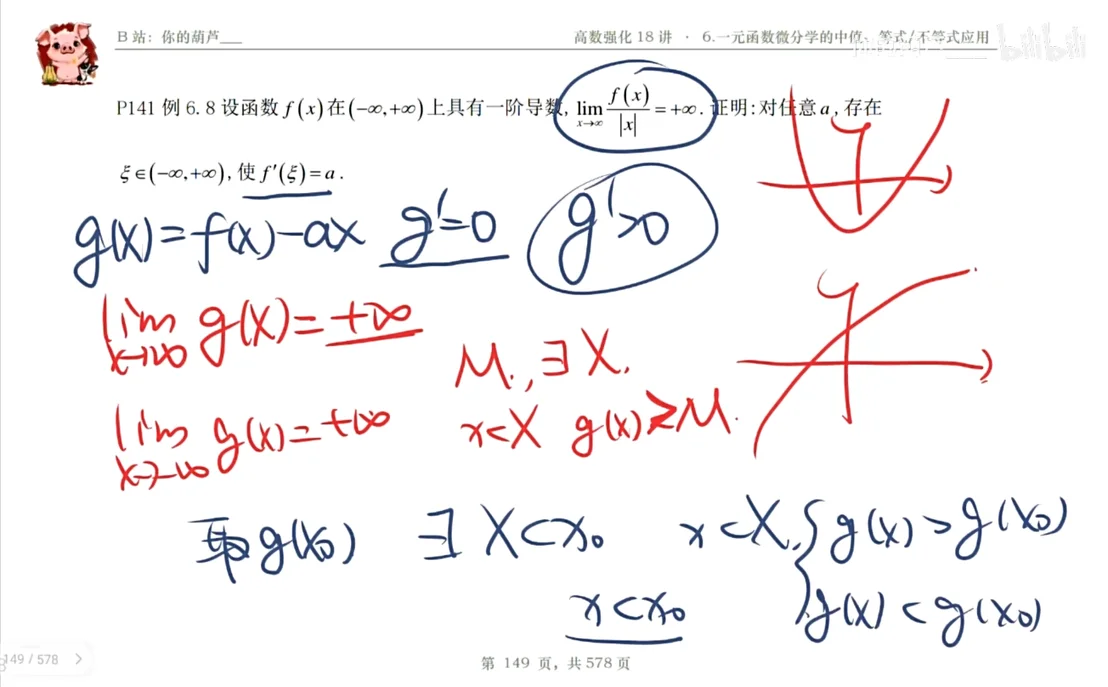 B 站：你的葫芦___
高数强化 18 讲 · 6.一元函数微分学的中值、等式/不等式应用
bilibili
P141 例 6.8 设函数 f(x) 在 (−∞,+∞) 上具有一阶导数, lim_{x→∞} f(x)/|x| = +∞. 证明：对任意 a, 存在
ξ∈(−∞,+∞), 使 f′(ξ)=a.
g(x)=f(x)−ax g′=0 g′>0
lim_{x→+∞} g(x)=+∞
M, ∃X.
lim_{x→−∞} g(x)=+∞
x<X g(x)≥M.
取g(x₀) ∃ X<x₀ x<X, { g(x)>g(x₀)
x<x₀ g(x)<g(x₀)
149 / 578 >
第 149 页，共 578 页